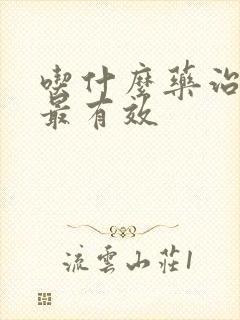 喫什麼藥治
最有效
流雲山莊1